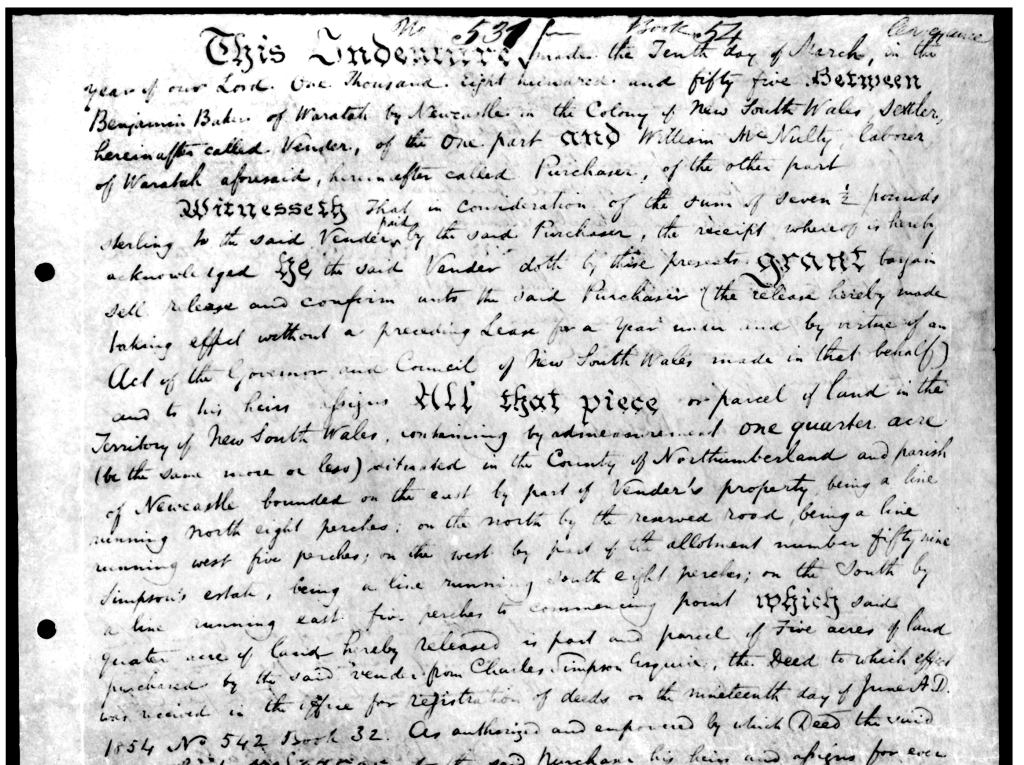 No 531 Book 54 Conveyance
This Indenture made the Tenth day of March, in the
year of our Lord One Thousand Eight hundred and fifty five Between
Benjamin Baker of Waratah by Newcastle in the Colony of New South Wales Settler,
hereinafter called Vender, of the One part and William McNulty, laborer
of Waratah aforesaid, hereinafter called Purchaser, of the other part
Witnesseth That in consideration of the sum of seven ½ pounds
sterling to the said Vender paid by the said Purchaser, the receipt whereof is hereby
acknowledged He the said Vender doth by these presents grant bargain
sell release and confirm unto the said Purchaser (the release hereby made
taking effect without a preceding Lease for a Year under and by virtue of an
Act of the Governor and Council of New South Wales made in that behalf)
and to his heirs assigns All that piece or parcel of land in the
Territory of New South Wales, containing by admeasurement one quarter acre
(be the same more or less) situated in the County of Northumberland and parish
of Newcastle bounded on the east by part of Vender's property, being a line
running North eight perches; on the north by the reserved road, being a line
running west five perches; on the west by part of the allotment number fifty nine
Simpson's estate, being a line running south eight perches; on the South by
a line running east five perches to commencing point which said
quater acre of land hereby released is part and parcel of Five acres of land
purchased by the said vender from Charles Simpson Esquire, the Deed to which effect
was received in the office for registration of deeds on the nineteenth day of June A.D.
1854 No 542 Book 32. As authorized and empowered by which Deed the said
the said Purchaser his heirs and assigns for ever